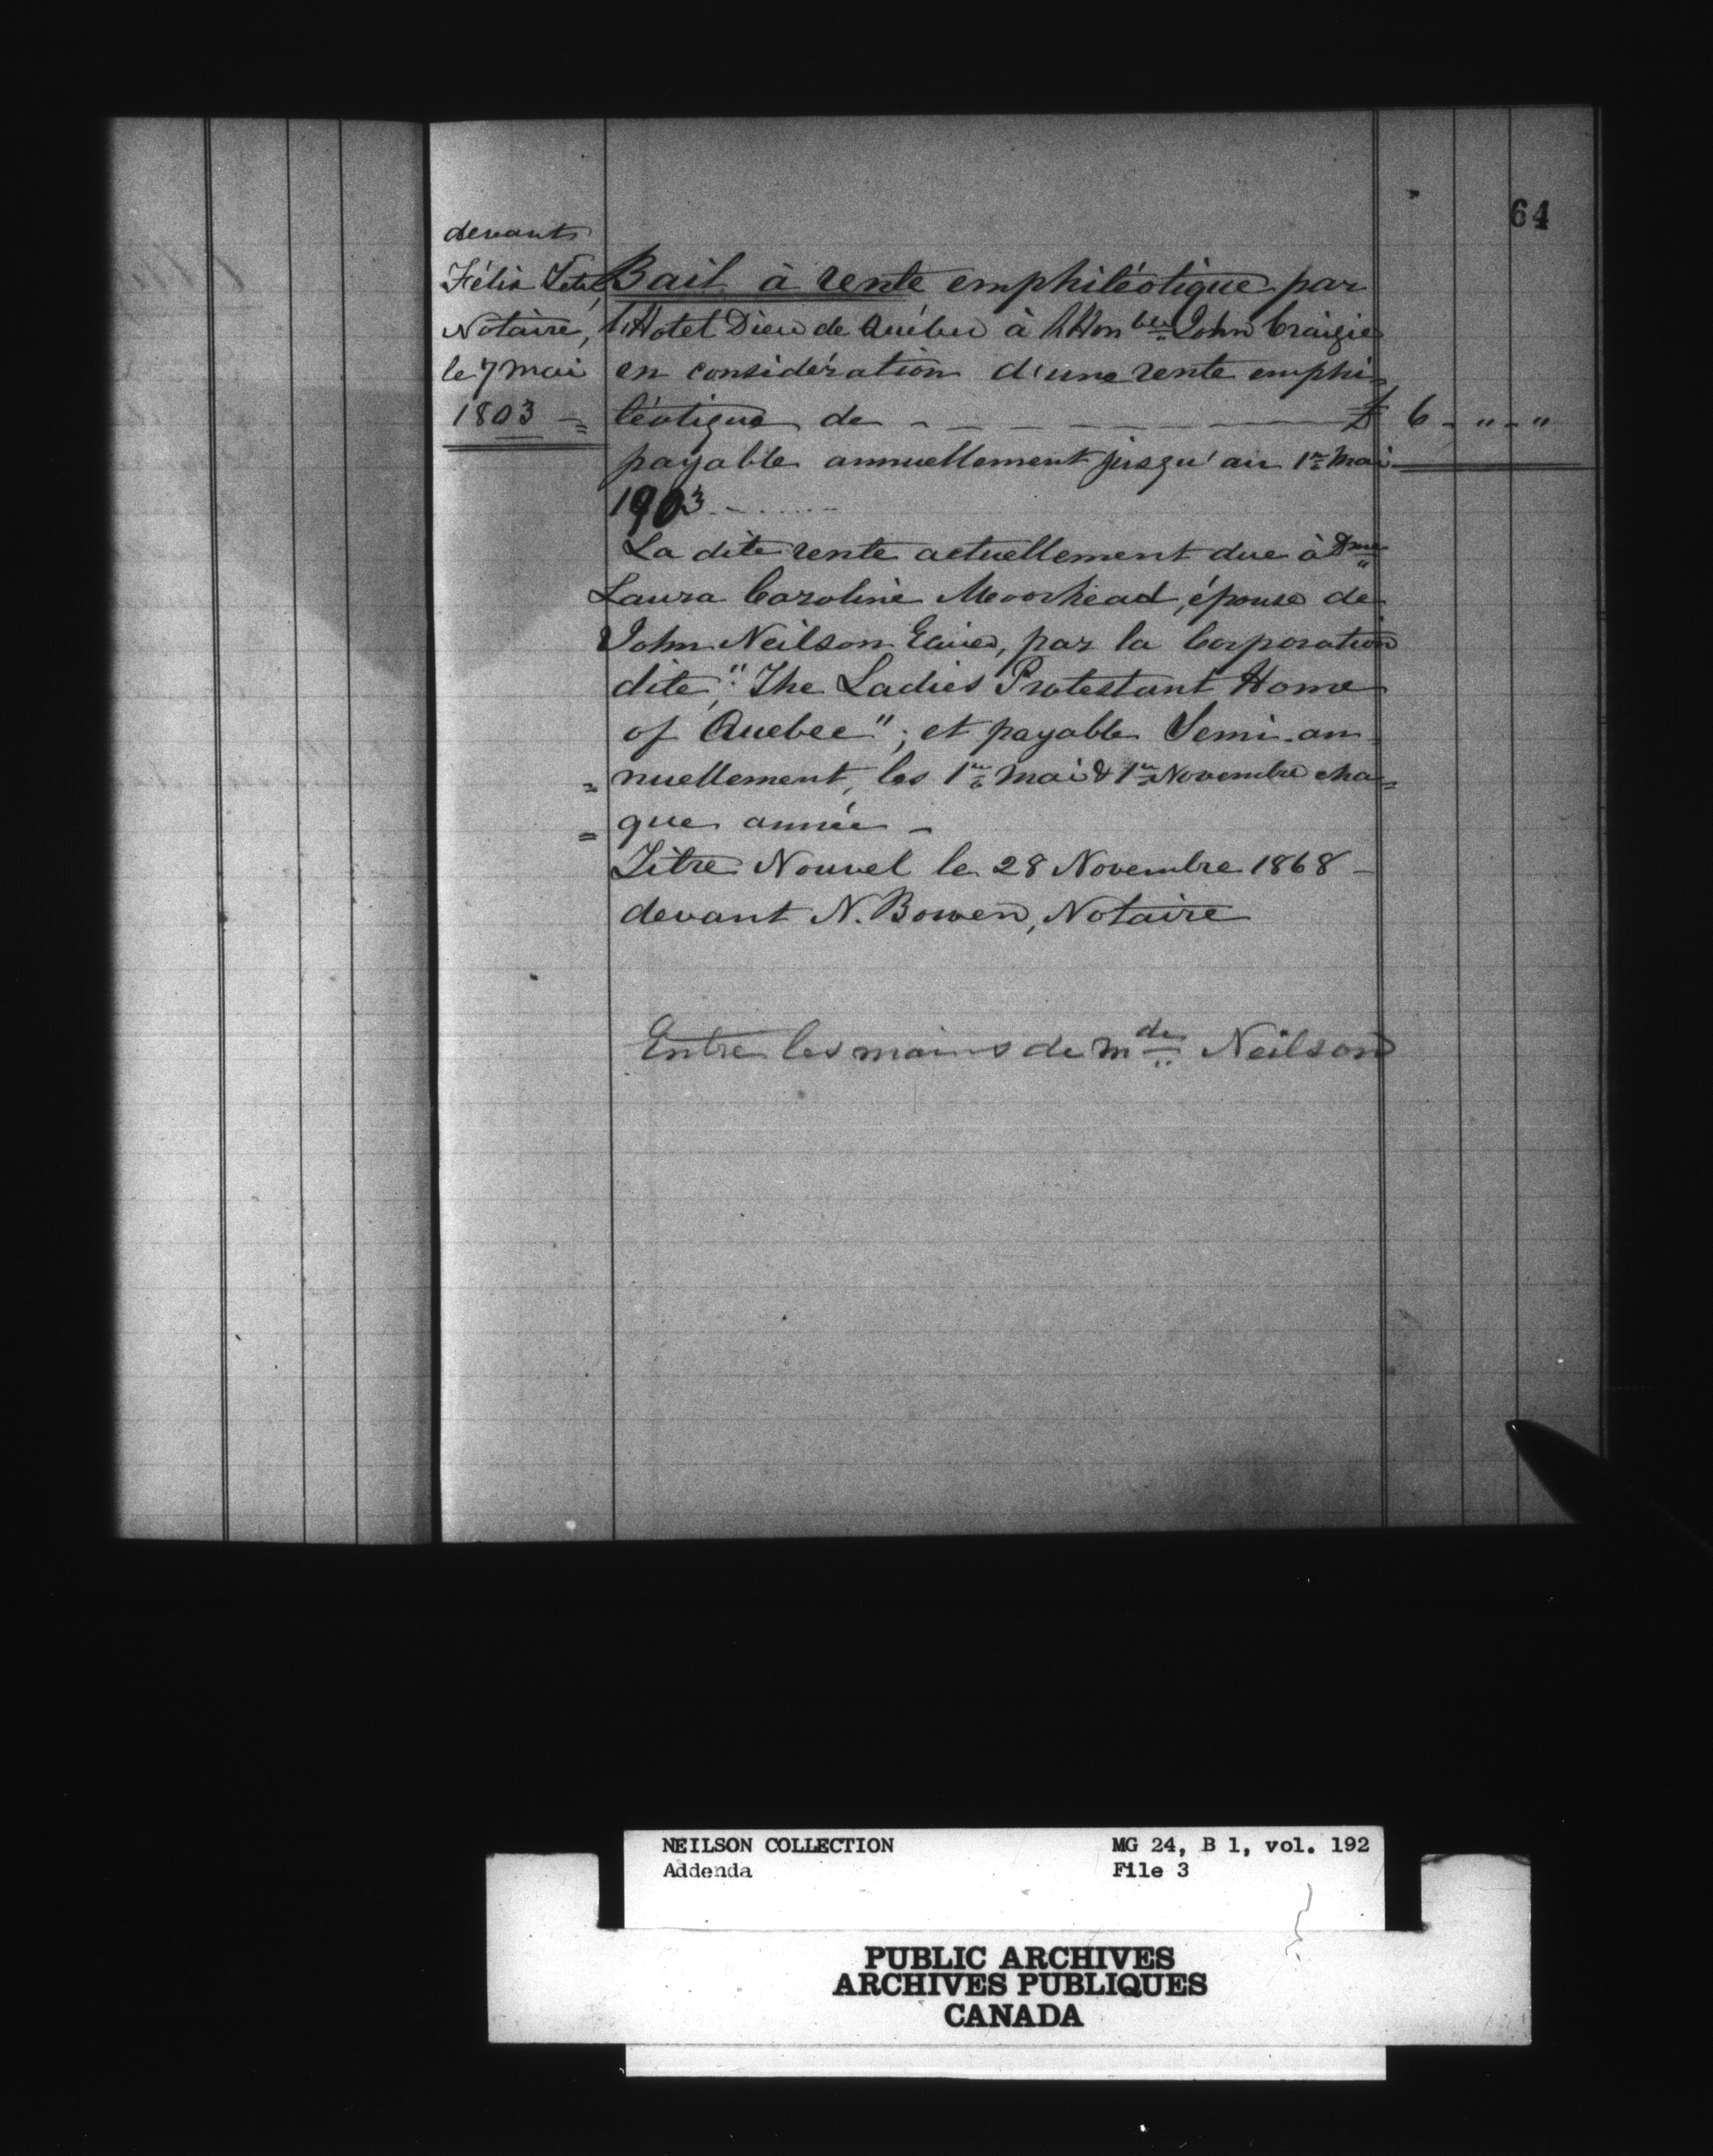 64
devant
Félix Tetu,
Notaire,
le 7 Mai
1803 =
Bail à rente emphitéotique par
l'Hotel Dieu de Québec à l'Hon ble John Craigie
en considération d'une rente emphi=
téotique de - - - - - - - £ 6 - " - "
payable annuellement jusqu'au 1er Mai
1903 - . . . . . .
La dite rente actuellement due à Dme
Laura Caroline Moorhead, épouse de
John Neilson Ecuier, par la Corporation
dite, "The Ladies Protestant Home
of Quebec"; et payable Semi-an=
= nuellement, les 1er Mai & 1er Novembre cha=
= que année -
Titre Nouvel le 28 Novembre 1868 -
devant N. Bowen, Notaire
Entre les mains de Mde Neilson
NEILSON COLLECTION MG 24, B 1, vol. 192
Addenda File 3
PUBLIC ARCHIVES
ARCHIVES PUBLIQUES
CANADA